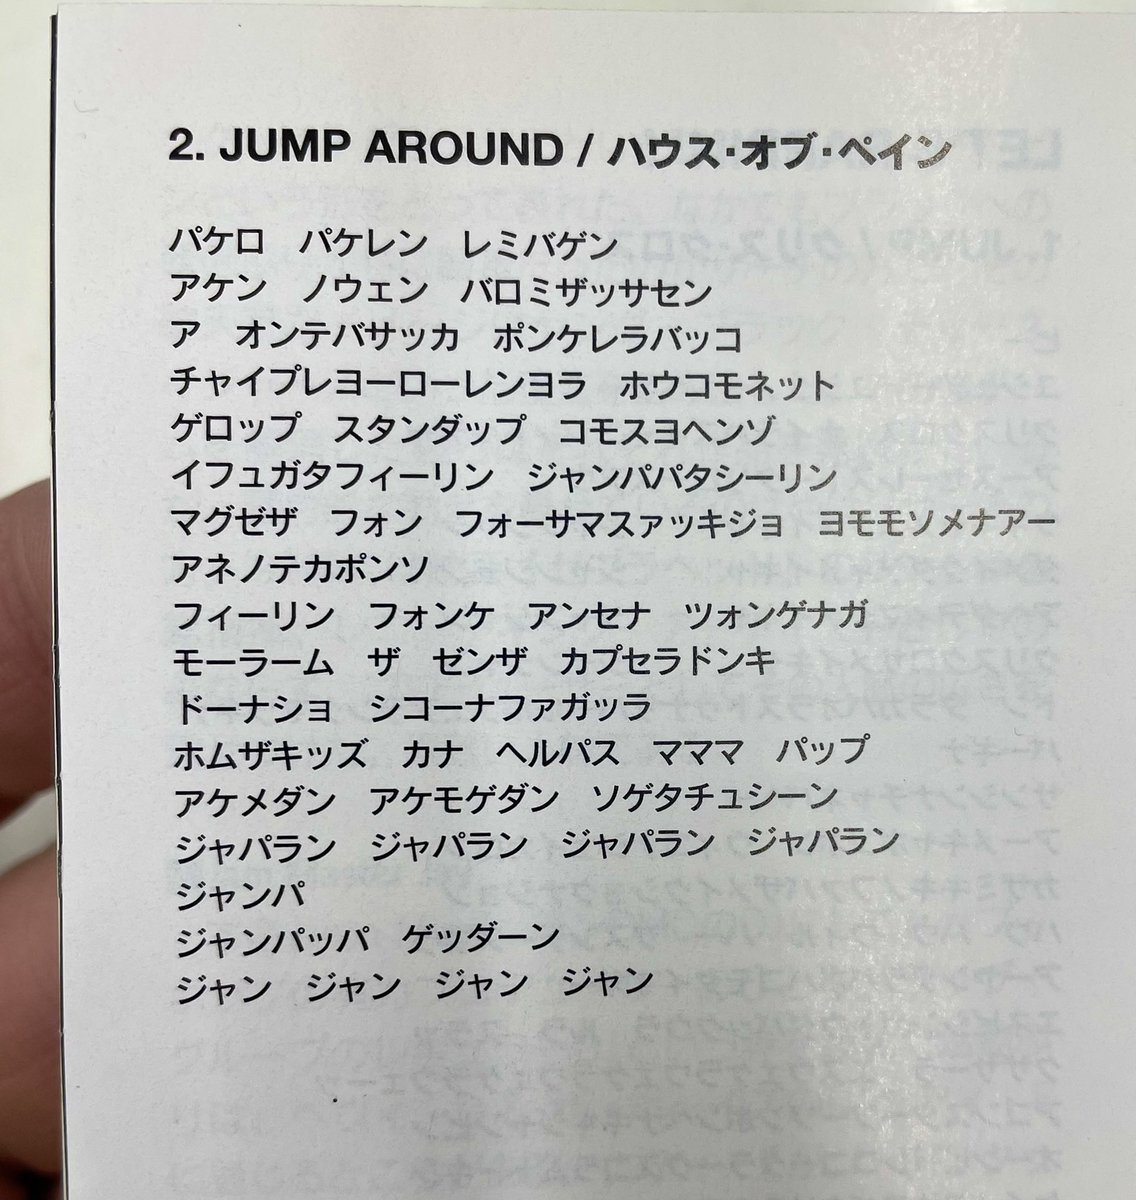 2. JUMP AROUND / ハウス・オブ・ペイン
パケロ　パケレン　レミバゲン
アケン　ノウェン　バロミザッサセン
ア　オンテバサッカ　ポンケレラバッコ
チャイプレヨーローレンヨラ　ホウコモネット
ゲロップ　スタンダップ　コモスヨヘンゾ
イフュガタフィーリン　ジャンパパタシーリン
マグゼザ　フォン　フォーサマスァッキジョ　ヨモモソメナアー
アネノテカポンソ
フィーリン　フォンケ　アンセナ　ツォンゲナガ
モーラーム　ザ　ゼンザ　カプセラドンキ
ドーナショ　シコーナファガッラ
ホムザキッズ　カナ　ヘルパス　マママ　パップ
アケメダン　アケモゲダン　ソゲタチュシーン
ジャパラン　ジャパラン　ジャパラン　ジャパラン
ジャンパ
ジャンパッパ　ゲッダーン
ジャン　ジャン　ジャン　ジャン